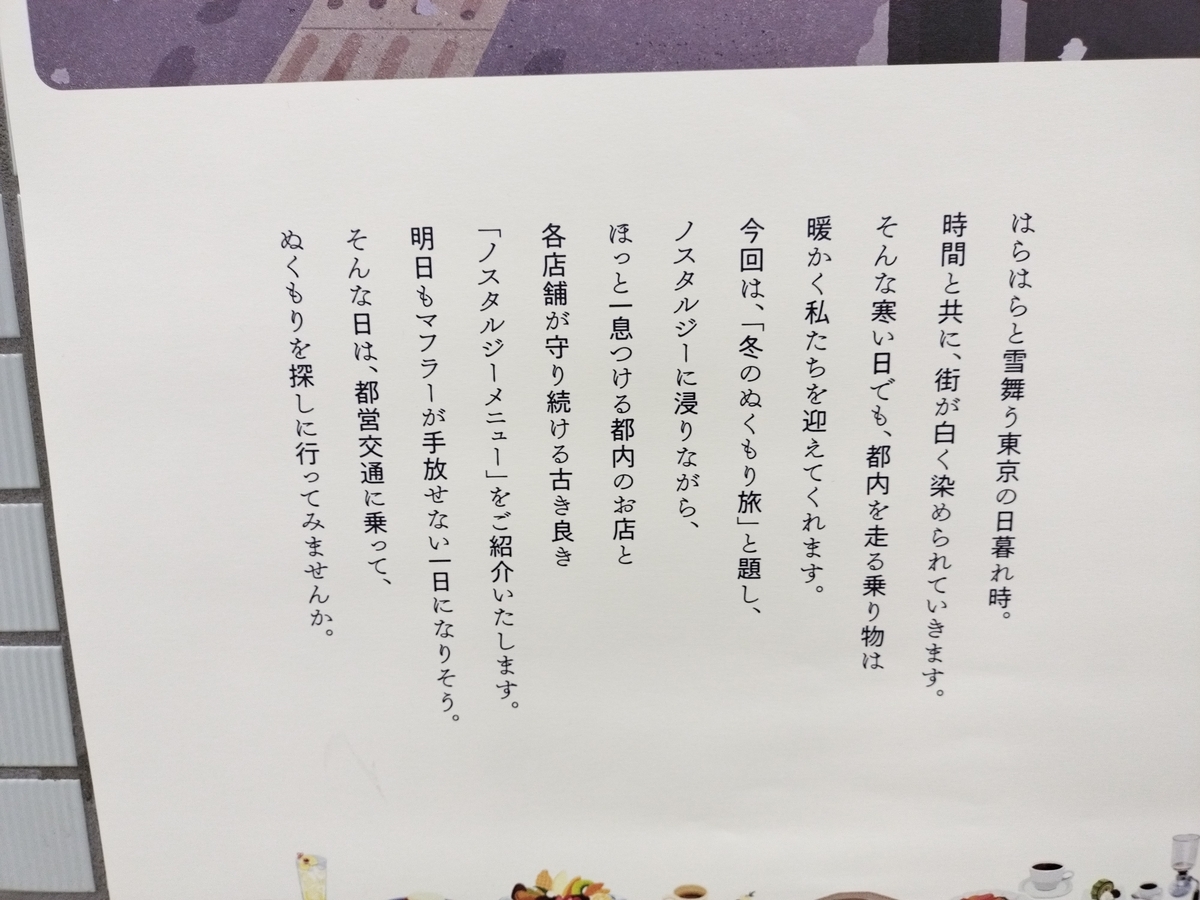 はらはらと雪舞う東京の日暮れ時。
時間と共に、街が白く染められていきます。
そんな寒い日でも、都内を走る乗り物は
暖かく私たちを迎えてくれます。
今回は、「冬のぬくもり旅」と題し、
ノスタルジーに浸りながら、
ほっと一息つける都内のお店と
各店舗が守り続ける古き良き
「ノスタルジーメニュー」をご紹介いたします。
明日もマフラーが手放せない一日になりそう。
そんな日は、都営交通に乗って、
ぬくもりを探しに行ってみませんか。